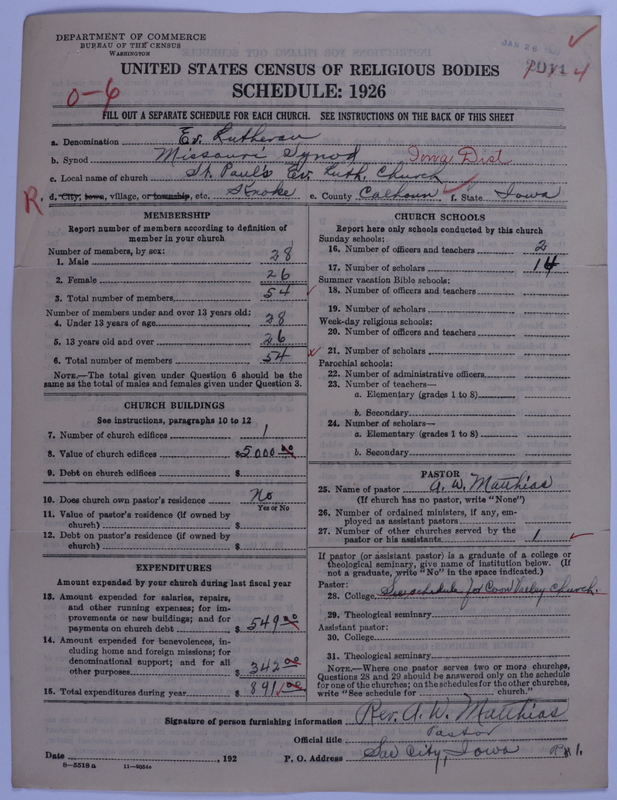 DEPARTMENT OF COMMERCE
BUREAU OF THE CENSUS
WASHINGTON
JAN 26
4
UNITED STATES CENSUS OF RELIGIOUS BODIES
SCHEDULE: 1926
0-6
FILL OUT A SEPARATE SCHEDULE FOR EACH CHURCH. SEE INSTRUCTIONS ON THE BACK OF THIS SHEET
a. Denomination Ev. Lutheran
b. Synod Missouri Synod Iowa Dist
c. Local name of church St. Paul's Ev. Luth. Church
R. d. City, town, village, or township, etc. Knoke e. County Calhoun f. State Iowa
MEMBERSHIP
Report number of members according to definition of
member in your church
Number of members, by sex:
1. Male 28
2. Female 26
3. Total number of members 54
Number of members under and over 13 years old:
4. Under 13 years of age 28
5. 13 years old and over 26
6. Total number of members 54
NOTE.—The total given under Question 6 should be
same as the total of males and females given under Question 3.
CHURCH BUILDINGS
See instructions, paragraphs 10 to 12
7. Number of church edifices 1
8. Value of church edifices $5000.00
9. Debt on church edifices $
10. Does church own pastor's residence No
Yes or No
11. Value of pastor's residence (if owned by
church) $
12. Debt on pastor's residence (if owned by
church) $
EXPENDITURES
Amount expended by your church during last fiscal year
13. Amount expended for salaries, repairs,
and other running expenses; for im-
provements or new buildings; and for
payments on church debt $ 549.00
14. Amount expended for benevolences, in-
cluding home and foreign missions; for
denominational support; and for all
other purposes $ 342.00
15. Total expenditures during year $ 891.00
CHURCH SCHOOLS
Report here only schools conducted by this church
Sunday schools:
16. Number of officers and teachers 2
17. Number of scholars 14
Summer vacation Bible schools:
18. Number of officers and teachers
19. Number of scholars
Week-day religious schools:
20. Number of officers and teachers
21. Number of scholars
Parochial schools:
22. Number of administrative officers
23. Number of teachers—
a. Elementary (grades 1 to 8)
b. Secondary
24. Number of scholars—
a. Elementary (grades 1 to 8)
b. Secondary
PASTOR
25. Name of pastor A. W. Matthias
(If church has no pastor, write "None")
26. Number of ordained ministers, if any, em-
ployed as assistant pastors
27. Number of other churches served by the
pastor or his assistants 1
If pastor (or assistant pastor) is a graduate of a college or
theological seminary, give name of institution below. (If
not a graduate, write "No" in the space indicated.)
Pastor:
28. College See schedule for Coon Valley Church.
29. Theological seminary
Assistant pastor:
30. College
31. Theological seminary
NOTE.—Where one pastor serves two or more churches,
Questions 28 and 29 should be answered only on the schedule
for one of the churches; on the schedules for the other churches,
write "See schedule for church."
Signature of person furnishing information Rev. A. W. Matthias
Official title Pastor
Date , 192 P. O. Address Sac City, Iowa R#1.
8—5518 a